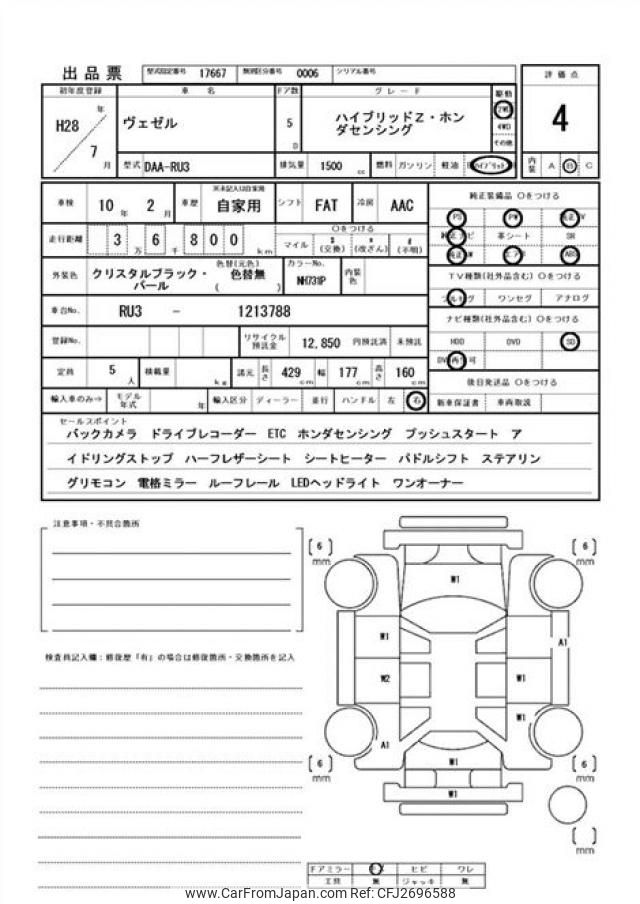 出品票 型式指定番号 17667 類別区分番号 0006 シリアル番号
初年度登録 車名 ドア数 グレード 駆動 評価点
H28 年 7 月 ヴェゼル 5 D ハイブリッドZ・ホン
ダセンシング 2WD 4WD その他 4
型式 DAA-RU3 排気量 1500 cc 燃料 ガソリン 軽油 ハイブリット 内装 A B C
車検 10 年 2 月 車歴 ※未記入は自家用 自家用 シフト FAT 冷房 AAC 純正装備品 〇をつける
PS PW 純正 TV
走行距離 3 万 6 千 8 0 0 km 〇をつける マイル $ (交換) * (改ざん) # (不明) 純正ナビ 革シート SR
純正AW エアB ABS
外装色 クリスタルブラック・
パール 色替(元色) 色替無 ( ) カラーNo. NH731P 内装色 TV種類(社外品含む) 〇をつける
フルセグ ワンセグ アナログ
車台No. RU3 - 1213788 ナビ種類(社外品含む) 〇をつける
登録No. リサイクル預託金 12,850 円預託済 未預託 HDD DVD SD
DVD再生可
定員 5 人 積載量 kg 諸元 長さ 429 cm 幅 177 cm 高さ 160 cm 後日発送品 〇をつける
輸入車のみ⇒ モデル年式 年 輸入区分 ディーラー 並行 ハンドル 左 右 新車保証書 車両取説
セールスポイント
バックカメラ ドライブレコーダー ETC ホンダセンシング プッシュスタート ア
イドリングストップ ハーフレザーシート シートヒーター パドルシフト ステアリン
グリモコン 電格ミラー ルーフレール LEDヘッドライト ワンオーナー
注意事項・不具合箇所
[ 6 ] mm [ 6 ] mm
W1
W1 A1
検査員記入欄：修復歴「有」の場合は修復箇所・交換箇所を記入
W2 W1
W1
A1
W1
[ 6 ] mm [ 6 ] mm
W1
[ ] mm
ドアミラー キズ ヒビ ワレ
工具 無 ジャッキ 無
www.CarFromJapan.com Ref: CFJ2696588